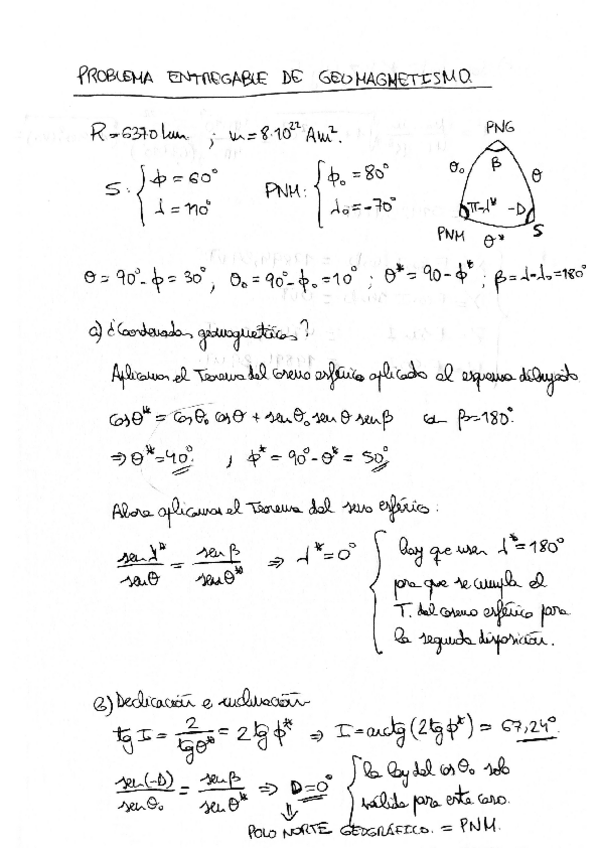 PROBLEMA ENTREGABLE DE GEOMAGNETISMO.
R=6370 km ; m=8·10²² Am².
PNG
S: { φ=60°
λ=110°
PNM: { φ₀=80°
λ₀=-70°
θ₀ β θ
π-λ* -D
PNM θ* S
θ=90°-φ=30°, θ₀=90°-φ₀=10° ; θ*=90-φ* ; β=λ-λ₀=180°
a) ¿Coordenadas geomagnéticas?
Aplicamos el Teorema del coseno esférico aplicado al esquema dibujado
cosθ*=cosθ₀ cosθ + senθ₀ senθ senβ β=180°
⇒θ*=40° , φ*=90°-θ*=50°
Ahora aplicamos el Teorema del seno esférico:
senλ*/senθ = senβ/senθ* ⇒ λ*=0° { hay que usar λ*=180°
para que se cumpla el
T. del coseno esférico para
la segunda disposición.
b) Declinación e inclinación
tg I = 2/tgθ* = 2tgφ* ⇒ I=arctg(2tgφ*)=67,24°
sen(-D)/senθ₀ = senβ/senθ* ⇒ D=0° { la ley del cosθ₀ solo
válida para este caso.
⇓
POLO NORTE GEOGRÁFICO. = PNM.